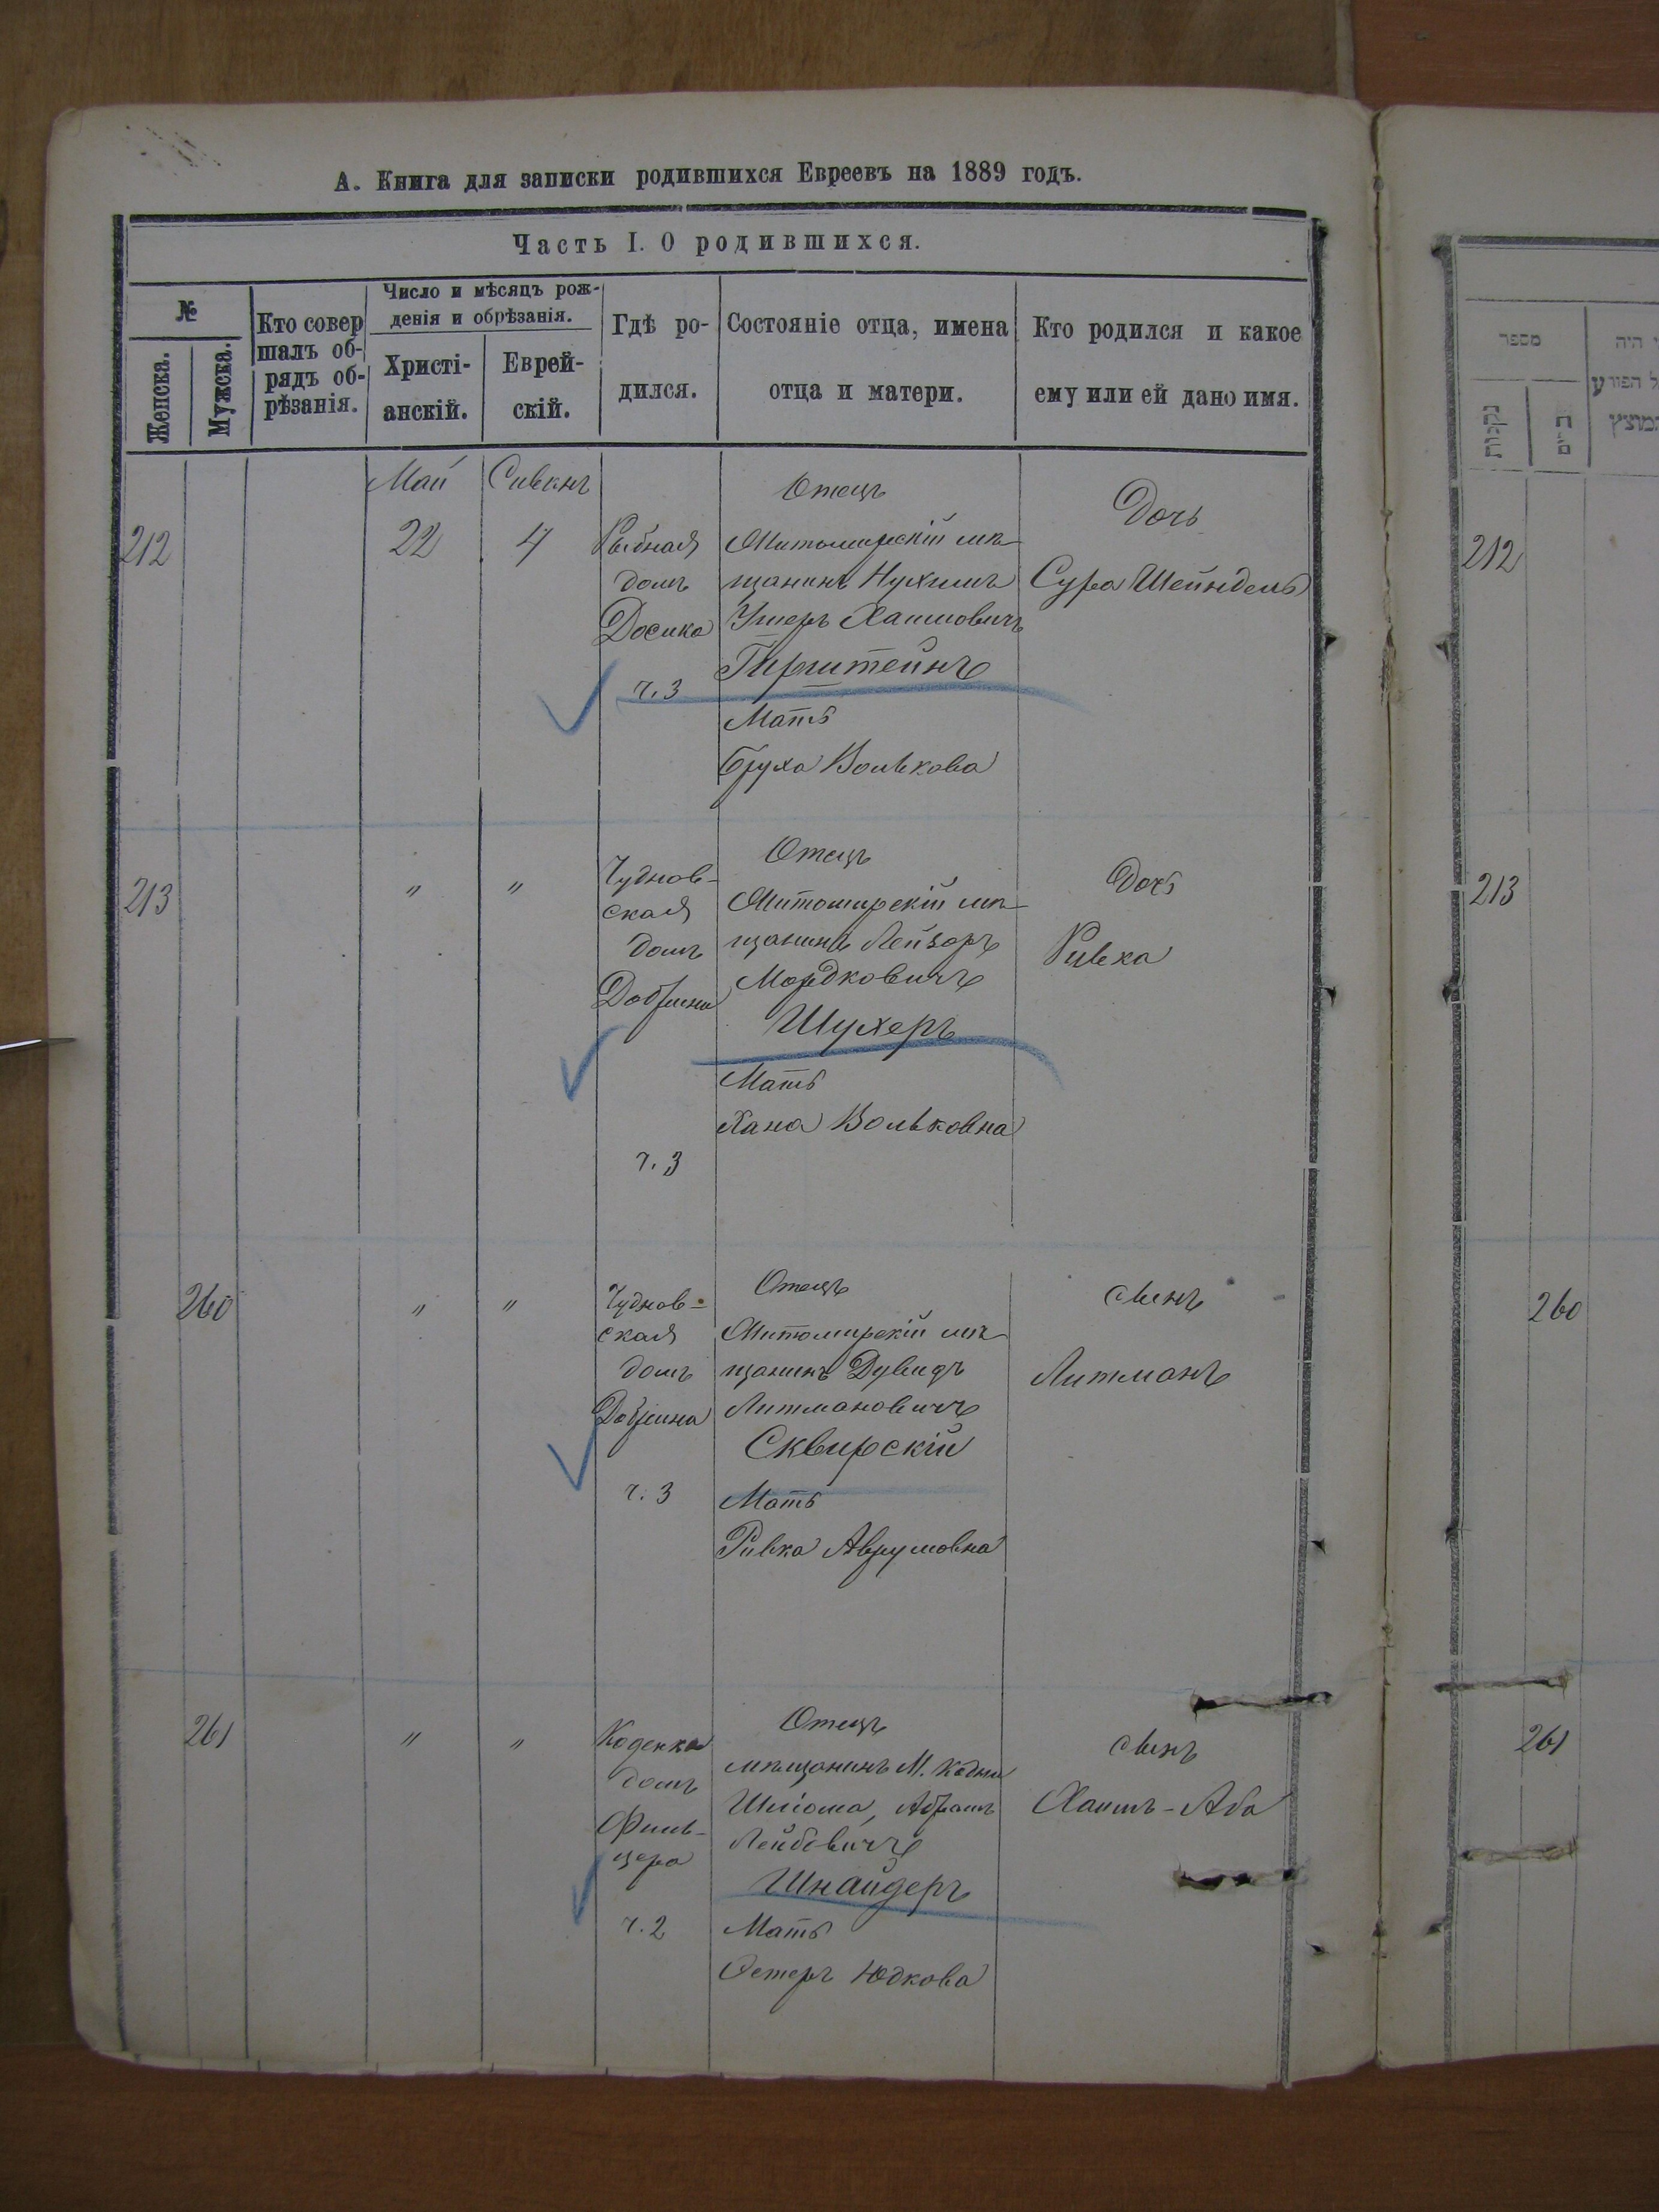 А. Книга для записки родившихся Евреевъ на 1889 годъ.
Часть I. О родившихся.
№
Женска.
Мужска.
Кто совер
шалъ об-
рядъ об-
рѣзанія.
Число и мѣсяцъ рож-
денія и обрѣзанія.
Христі-
анскій.
Еврей-
скій.
Гдѣ ро-
дился.
Состояніе отца, имена
отца и матери.
Кто родился и какое
ему или ей дано имя.
212
Май
22
Сиванъ
4
Рыбная
домъ
Досика
ч. 3
Отецъ
Житомирскій мѣ-
щанинъ Нухимъ
Ушеръ Хаимовичъ
Гирштейнъ
Мать
Бруха Волькова
Дочь
Сура Шейндель
213
"
"
Чуднов-
ская
домъ
ч. 3
Отецъ
Житомирскій мѣ-
щанинъ Лейзоръ
Мордковичъ
Шухеръ
Мать
Хана Вольковна
Дочь
Ривка
260
"
"
Чуднов-
ская
домъ
ч. 3
Отецъ
Житомирскій мѣ-
щанинъ Дувидъ
Литмановичъ
Сквирскій
Мать
Ривка Аврумовна
сынъ
Литманъ
261
"
"
домъ
Филь-
цера
ч. 2
Отецъ
мѣщанинъ М. Кодни
Шлiома, Абрамъ
Лейбовичъ
Шнайдеръ
Мать
Эстеръ Юдкова
сынъ
Хаимъ-Аба
מספר
נקבות
212
213
260
261